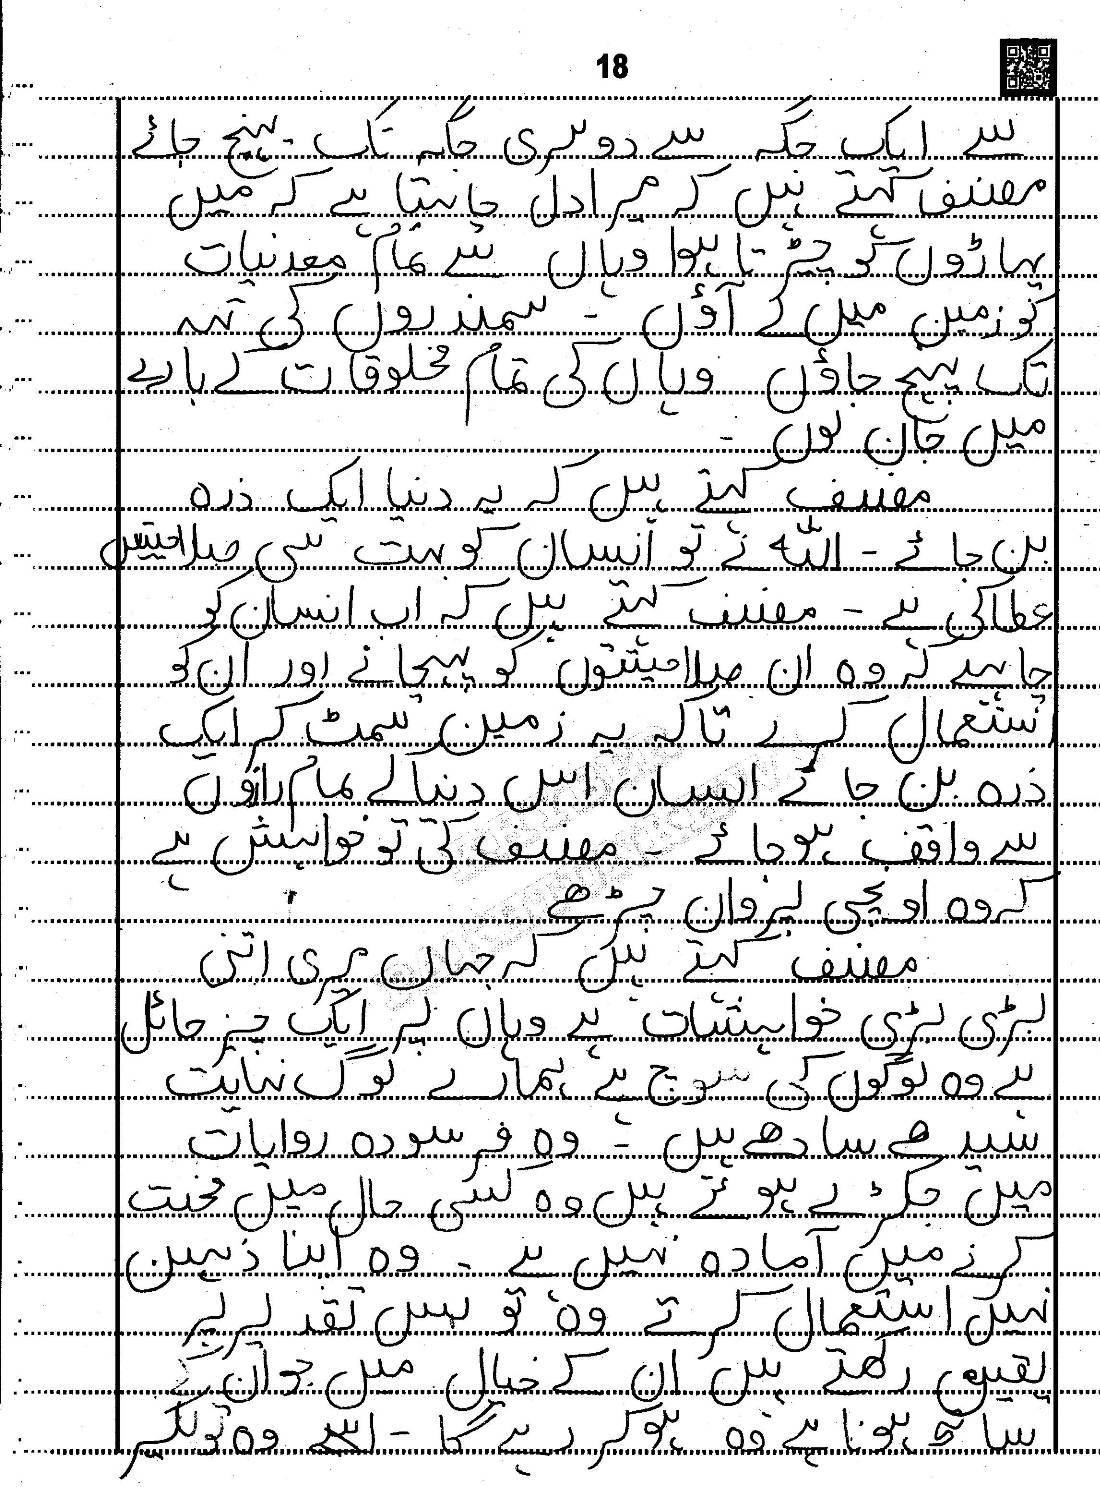 18
سے ایک جگہ سے دوسری جگہ تک پہنچ جائے
مصنف کہتے ہیں کہ میرا دل چاہتا ہے کہ میں
پہاڑوں کو چیڑتا ہوا وہاں سے تمام معدنیات
کو زمین میں لے آؤں ۔ سمندروں کی تہہ
تک پہنچ جاؤں وہاں کی تمام مخلوقات کے بارے
میں جان لوں ۔
مصنف کہتے ہیں کہ یہ دنیا ایک ذرہ
بن جائے ۔ اللہ نے تو انسان کو بہت سی صلاحیتیں
عطا کی ہے ۔ مصنف کہتے ہیں کہ اب انسان کو
چاہیے کہ وہ ان صلاحیتوں کو پہچانے اور ان کو
استعمال کرے تاکہ یہ زمین سمٹ کر ایک
ذرہ بن جائے انسان اس دنیا کے تمام رازوں
سے واقف ہو جائے ۔ مصنف کی تو خواہش ہے
کہ وہ اونچی پروان چڑھے
مصنف کہتے ہیں کہ جہاں میری اتنی
بڑی بڑی خواہشات ہے وہاں پر ایک چیز حائل
ہے وہ لوگوں کی سوچ ہے ہمارے لوگ نہایت
سیدھے سادھے ہیں ۔ وہ فرسودہ روایات
میں جکڑے ہوئے ہیں وہ کسی حال میں محنت
کرنے میں آمادہ نہیں ہے ۔ وہ اپنا ذہین
نہیں استعمال کرتے وہ تو بس تقدیر پر
یقین رکھتے ہیں ان کے خیال میں جو ان کے
ساتھ ہونا ہے وہ ہو کر رہے گا ۔ وہ تو